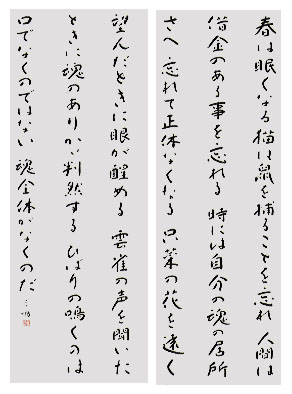 春は眠くなる猫は鼠を捕ることを忘れ人間は
借金のある事を忘れる時には自分の魂の居所
さへ忘れて正体なくなる只菜の花を遠く
望んだときに眼が醒める雲雀の声を聞いた
ときに魂のありかが判然するひばりの鳴くのは
口でなくのではない魂全体がなくのだ